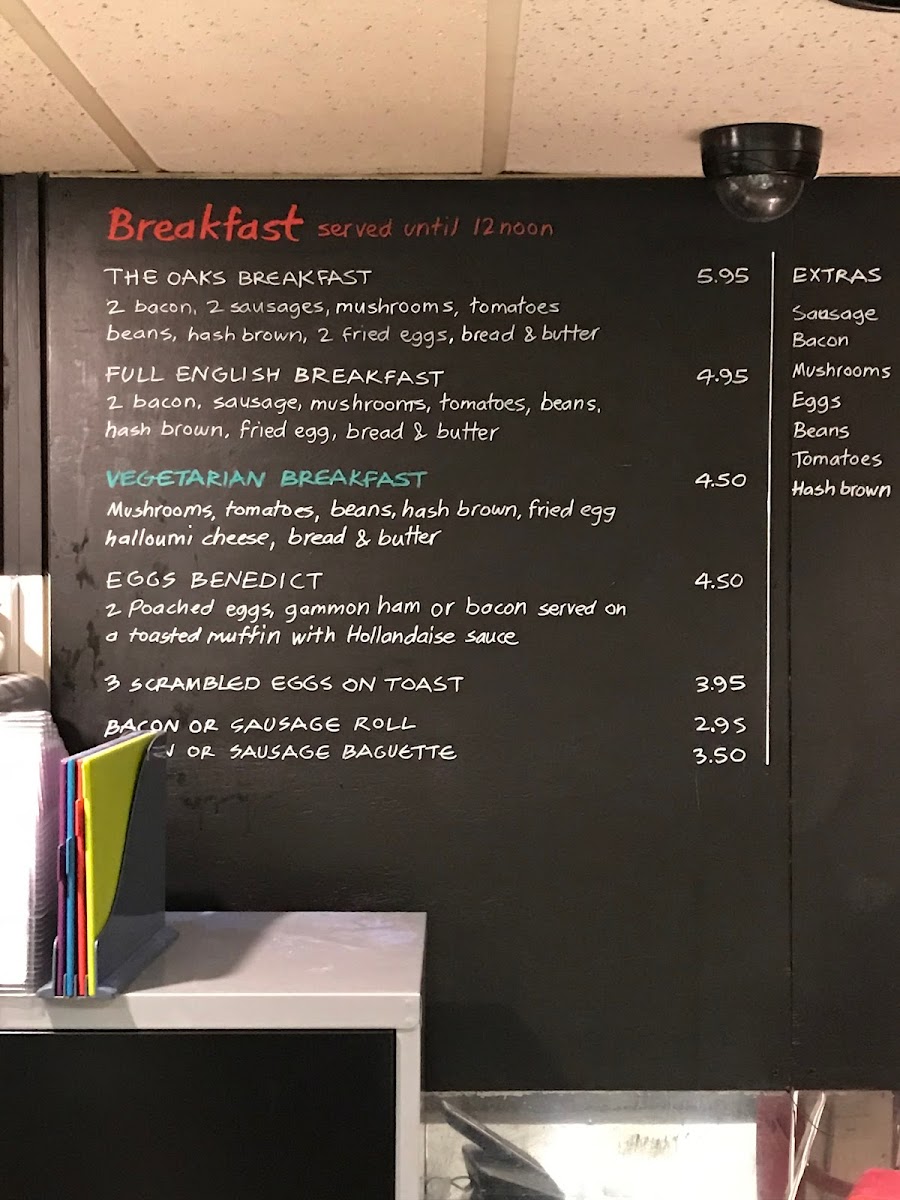 Breakfast served until 12 noon
THE OAKS BREAKFAST 5.95
2 bacon, 2 sausages, mushrooms, tomatoes
beans, hash brown, 2 fried eggs, bread & butter
FULL ENGLISH BREAKFAST 4.95
2 bacon, sausage, mushrooms, tomatoes, beans,
hash brown, fried egg, bread & butter
VEGETARIAN BREAKFAST 4.50
Mushrooms, tomatoes, beans, hash brown, fried egg
halloumi cheese, bread & butter
EGGS BENEDICT 4.50
2 Poached eggs, gammon ham or bacon served on
a toasted muffin with Hollandaise sauce
3 SCRAMBLED EGGS ON TOAST 3.95
BACON OR SAUSAGE ROLL 2.95
OR SAUSAGE BAGUETTE 3.50
EXTRAS
Sausage
Bacon
Mushrooms
Eggs
Beans
Tomatoes
Hash brown